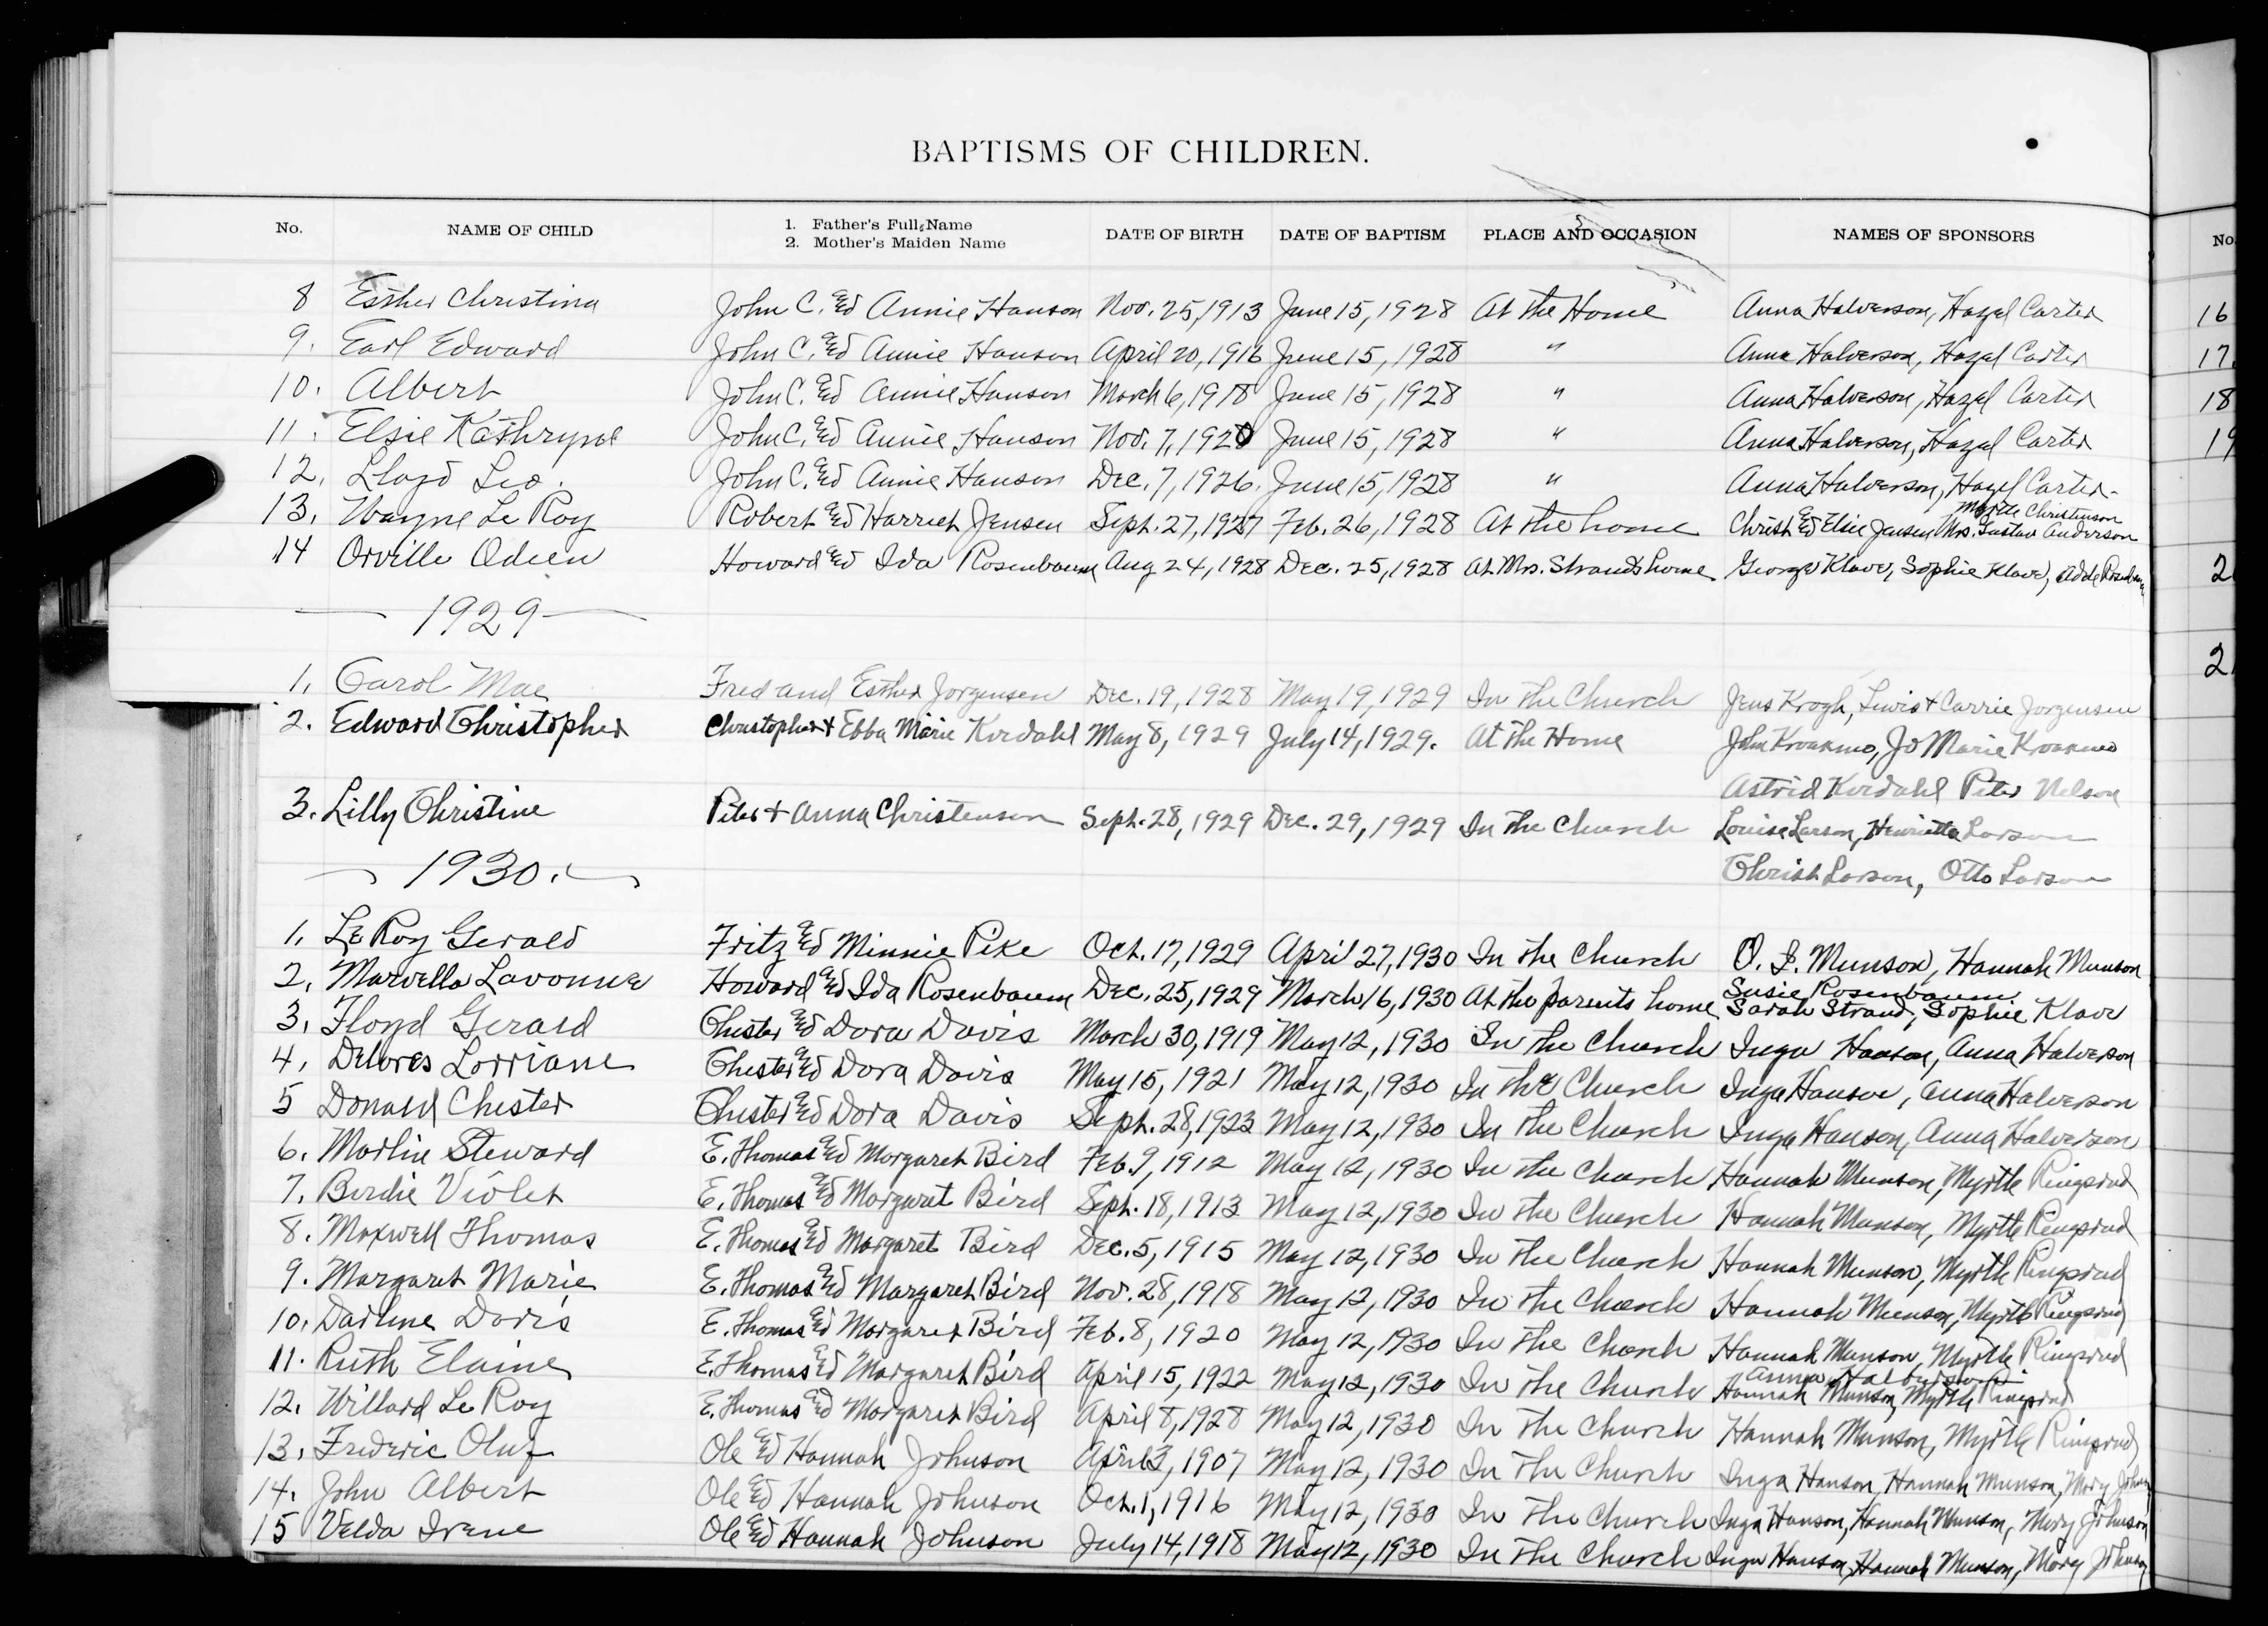 BAPTISMS OF CHILDREN.
No. NAME OF CHILD 1. Father's Full Name DATE OF BIRTH DATE OF BAPTISM PLACE AND OCCASION NAMES OF SPONSORS No.
2. Mother's Maiden Name
8 Esther Christina John C. and Annie Hanson Nov. 25, 1913 June 15, 1928 At the Home Anna Halverson, Hazel Carter 16
9. Earl Edward John C. and Annie Hanson April 20, 1916 June 15, 1928 " Anna Halverson, Hazel Carter 17.
10. Albert John C. and Annie Hanson March 6, 1918 June 15, 1928 " Anna Halverson, Hazel Carter 18
11. Elsie Kathryne John C. and Annie Hanson Nov. 7, 1920 June 15, 1928 " Anna Halverson, Hazel Carter 19
12. Lloyd Leo. John C. and Annie Hanson Dec. 7, 1926. June 15, 1928 " Anna Halverson, Hazel Carter.
Myrtle Christenson
13. Wayne Le Roy Robert and Harriet Jensen Sept. 27, 1927 Feb. 26, 1928 At the home Christ and Elsie Jensen Mrs. Gustav Anderson
14 Orville Odeen Howard and Ida Rosenbaum Aug 24, 1928 Dec. 25, 1928 At Mrs. Strands home George Klave, Sophie Klave, 2
1929
1. Carol Mae Fred and Esther Jorgensen Dec. 19, 1928 May 19, 1929 In the Church Jens Krogh, Lewis + Carrie Jorgensen 2
2. Edward Christopher Christopher + Ebba Marie Kverdahl May 8, 1929 July 14, 1929. At the Home John Kroakmo, Jo Marie Kroakmo
Astrid Kverdahl Peter Nelson
3. Lilly Christine Peter + Anna Christensen Sept. 28, 1929 Dec. 29, 1929 In the Church Louise Larson, Henrietta Larson
1930. Christ Larson, Otto Larson
1. Le Roy Gerald Fritz and Minnie Pike Oct. 17, 1929 April 27, 1930 In the Church O. I. Munson, Hannah Munson
Susie Rosenbaum
2. Marvella Lavonne Howard and Ida Rosenbaum Dec. 25, 1929 March 16, 1930 At the parents home Sarah Strand, Sophie Klave
3. Floyd Gerald Chester and Dora Davis March 30, 1919 May 12, 1930 In the Church Inga Hanson, Anna Halverson
4. Delores Lorriane Chester and Dora Davis May 15, 1921 May 12, 1930 In the Church Inga Hanson, Anna Halverson
5 Donald Chester Chester and Dora Davis Sept. 28, 1923 May 12, 1930 In the Church Inga Hanson, Anna Halverson
6. Marlin Steward E. Thomas and Margaret Bird Feb. 9, 1912 May 12, 1930 In the Church Hannah Munson, Myrtle Ringsrud
7. Berdie Violet E. Thomas and Margaret Bird Sept. 18, 1913 May 12, 1930 In the Church Hannah Munson, Myrtle Ringsrud
8. Maxwell Thomas E. Thomas and Margaret Bird Dec. 5, 1915 May 12, 1930 In the Church Hannah Munson, Myrtle Ringsrud
9. Margaret Marie E. Thomas and Margaret Bird Nov. 28, 1918 May 12, 1930 In the Church Hannah Munson, Myrtle Ringsrud
10. Darlene Doris E. Thomas and Margaret Bird Feb. 8, 1920 May 12, 1930 In the Church Hannah Munson, Myrtle Ringsrud
Anna Halverson
11. Ruth Elaine E. Thomas and Margaret Bird April 15, 1922 May 12, 1930 In the Church Hannah Munson, Myrtle Ringsrud
12. Willard Le Roy E. Thomas and Margaret Bird April 8, 1928 May 12, 1930 In the Church Hannah Munson, Myrtle Ringsrud
13. Frederic Oluf Ole and Hannah Johnson April 3, 1907 May 12, 1930 In the Church Inga Hanson, Hannah Munson, Mary Johnson
14. John Albert Ole and Hannah Johnson Oct. 1, 1916 May 12, 1930 In the Church Inga Hanson, Hannah Munson, Mary Johnson
15 Velda Irene Ole and Hannah Johnson July 14, 1918 May 12, 1930 In the Church Inga Hanson, Hannah Munson, Mary Johnson